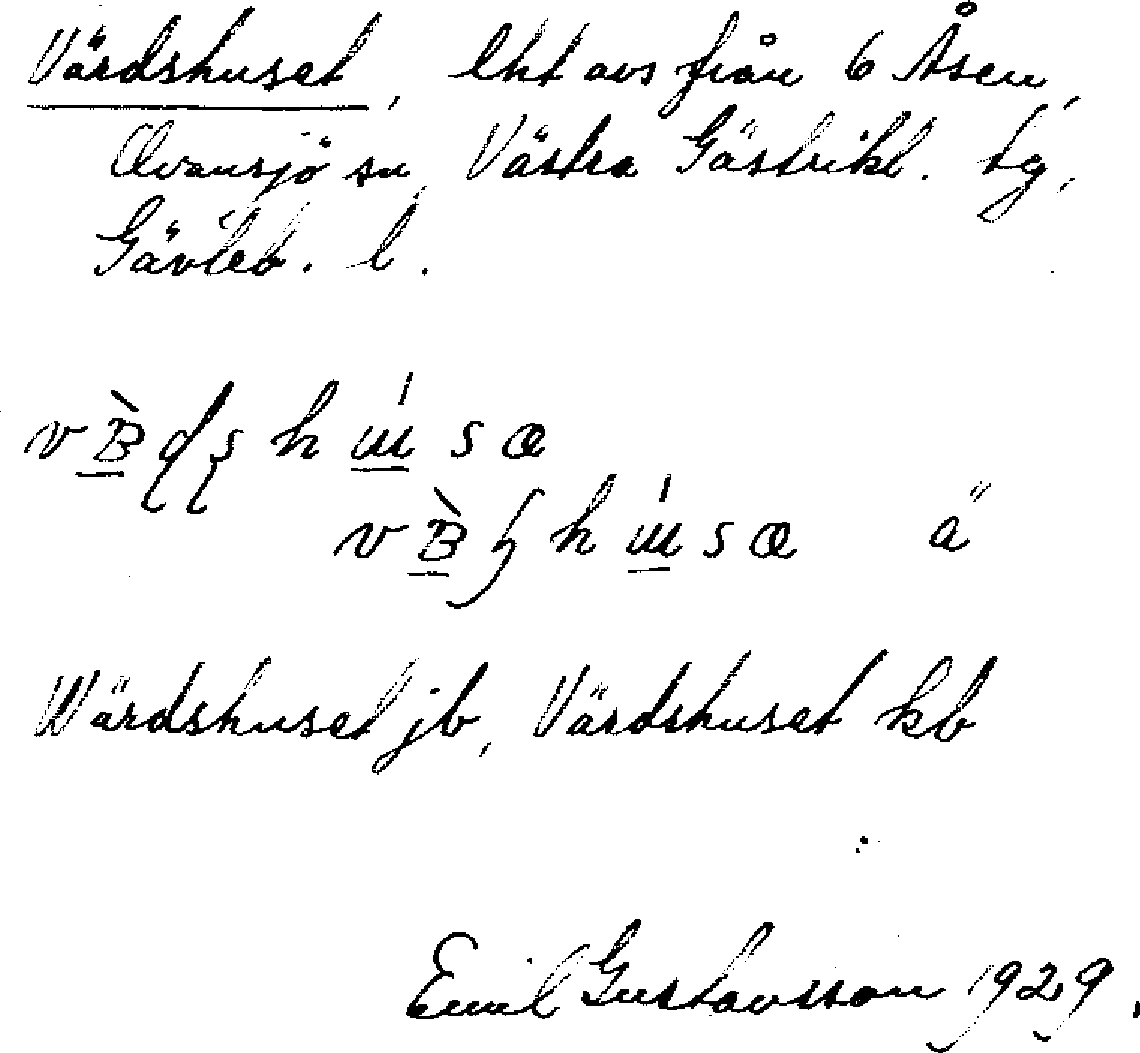 Värdshuset, lht avs från 6 Åsen,
Ovansjö sn, Västra Gästrikl. tg,
Gävleb. l.
ä
Wärdshuset jb, Värdshuset kb
Emil Gustavsson 1929.